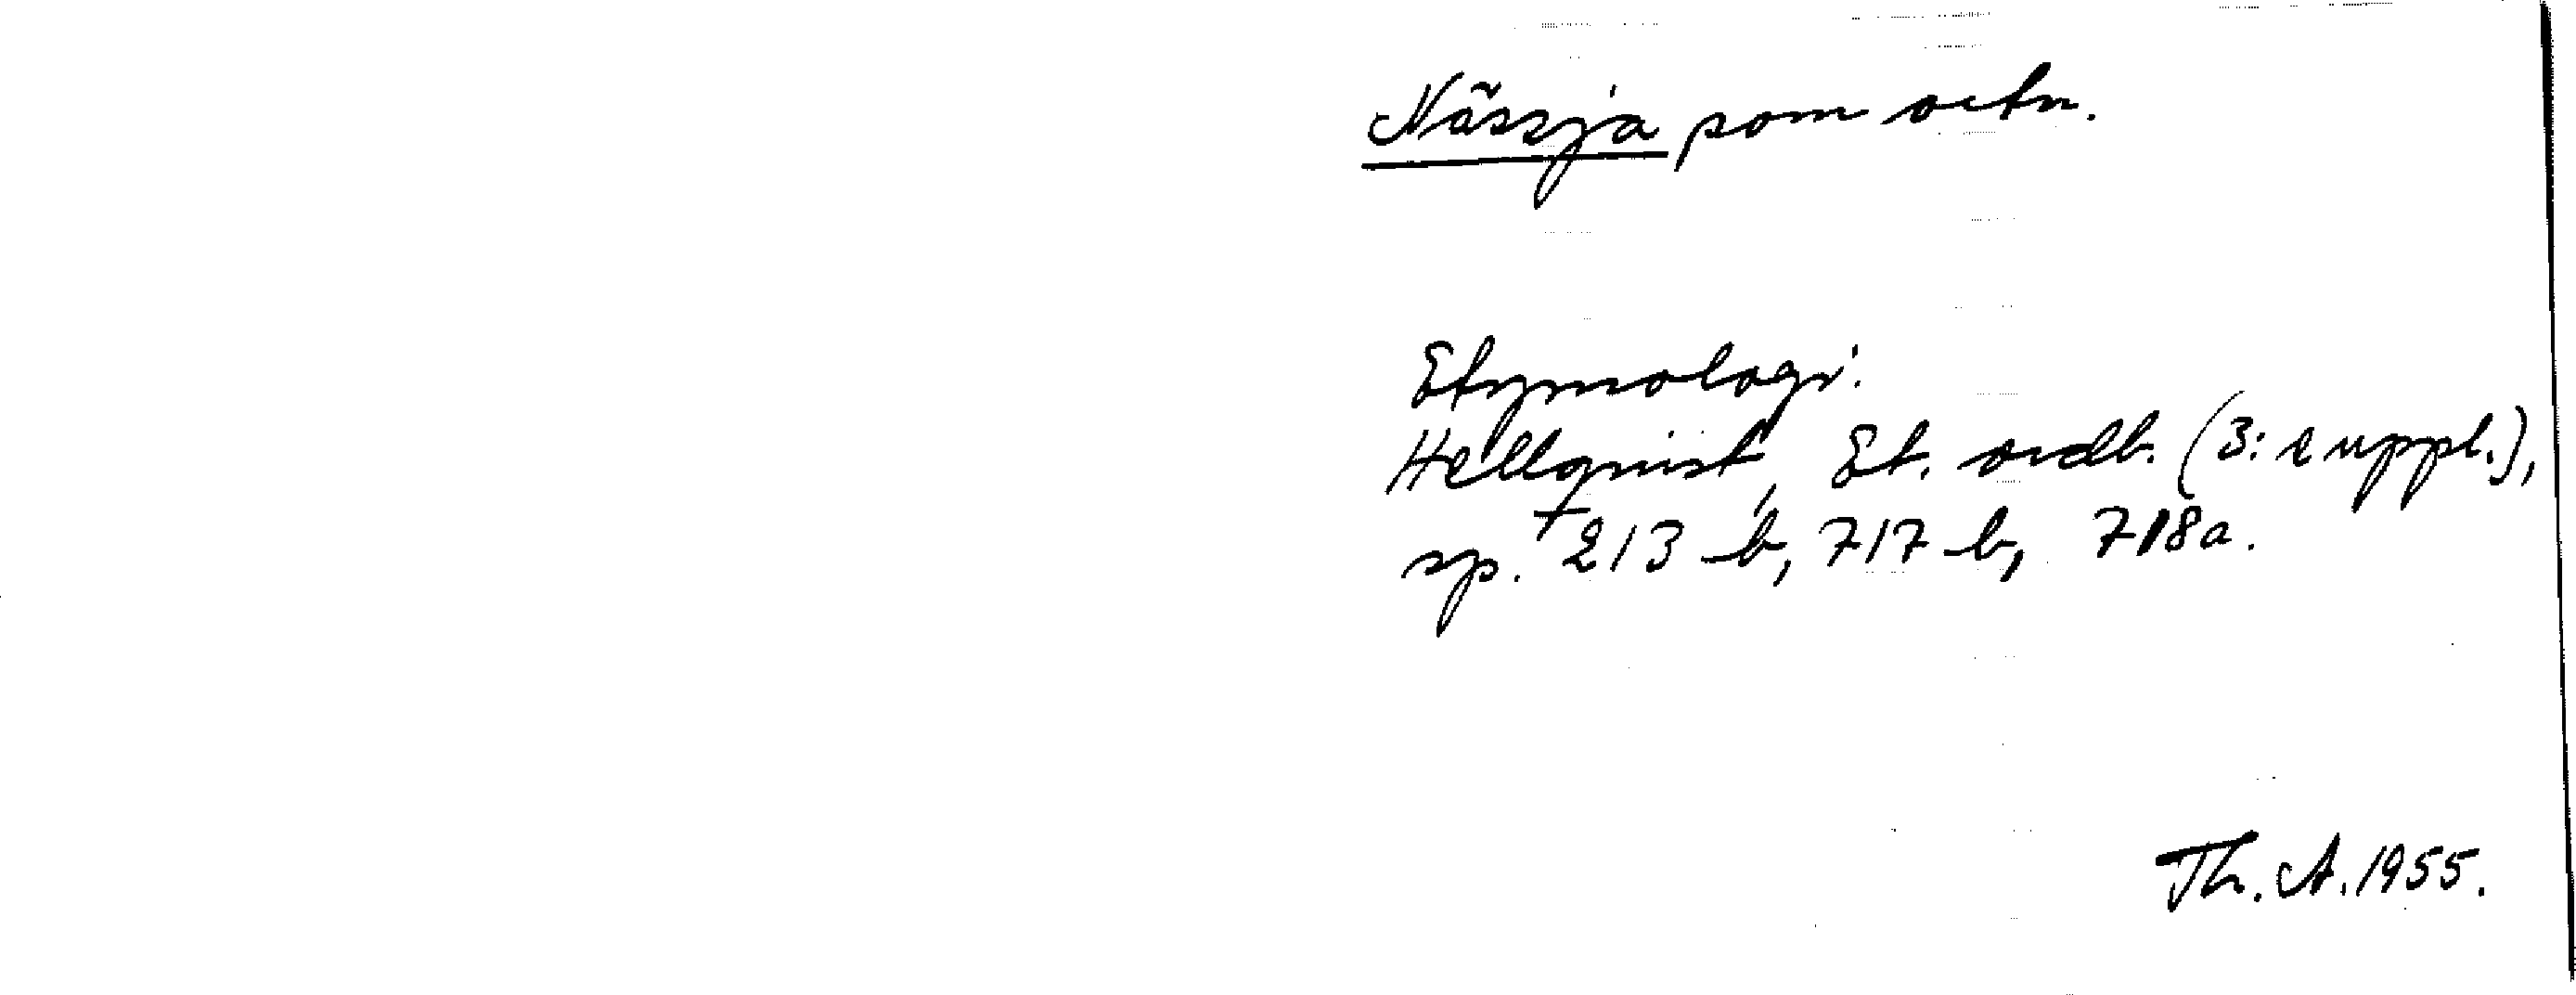 Nässja som ortn.
Etymologi.
Hellquist, Et. ordb. (3:e uppl.),
sp. 213 b, 717 b, 718a.
Th. A. 1955.